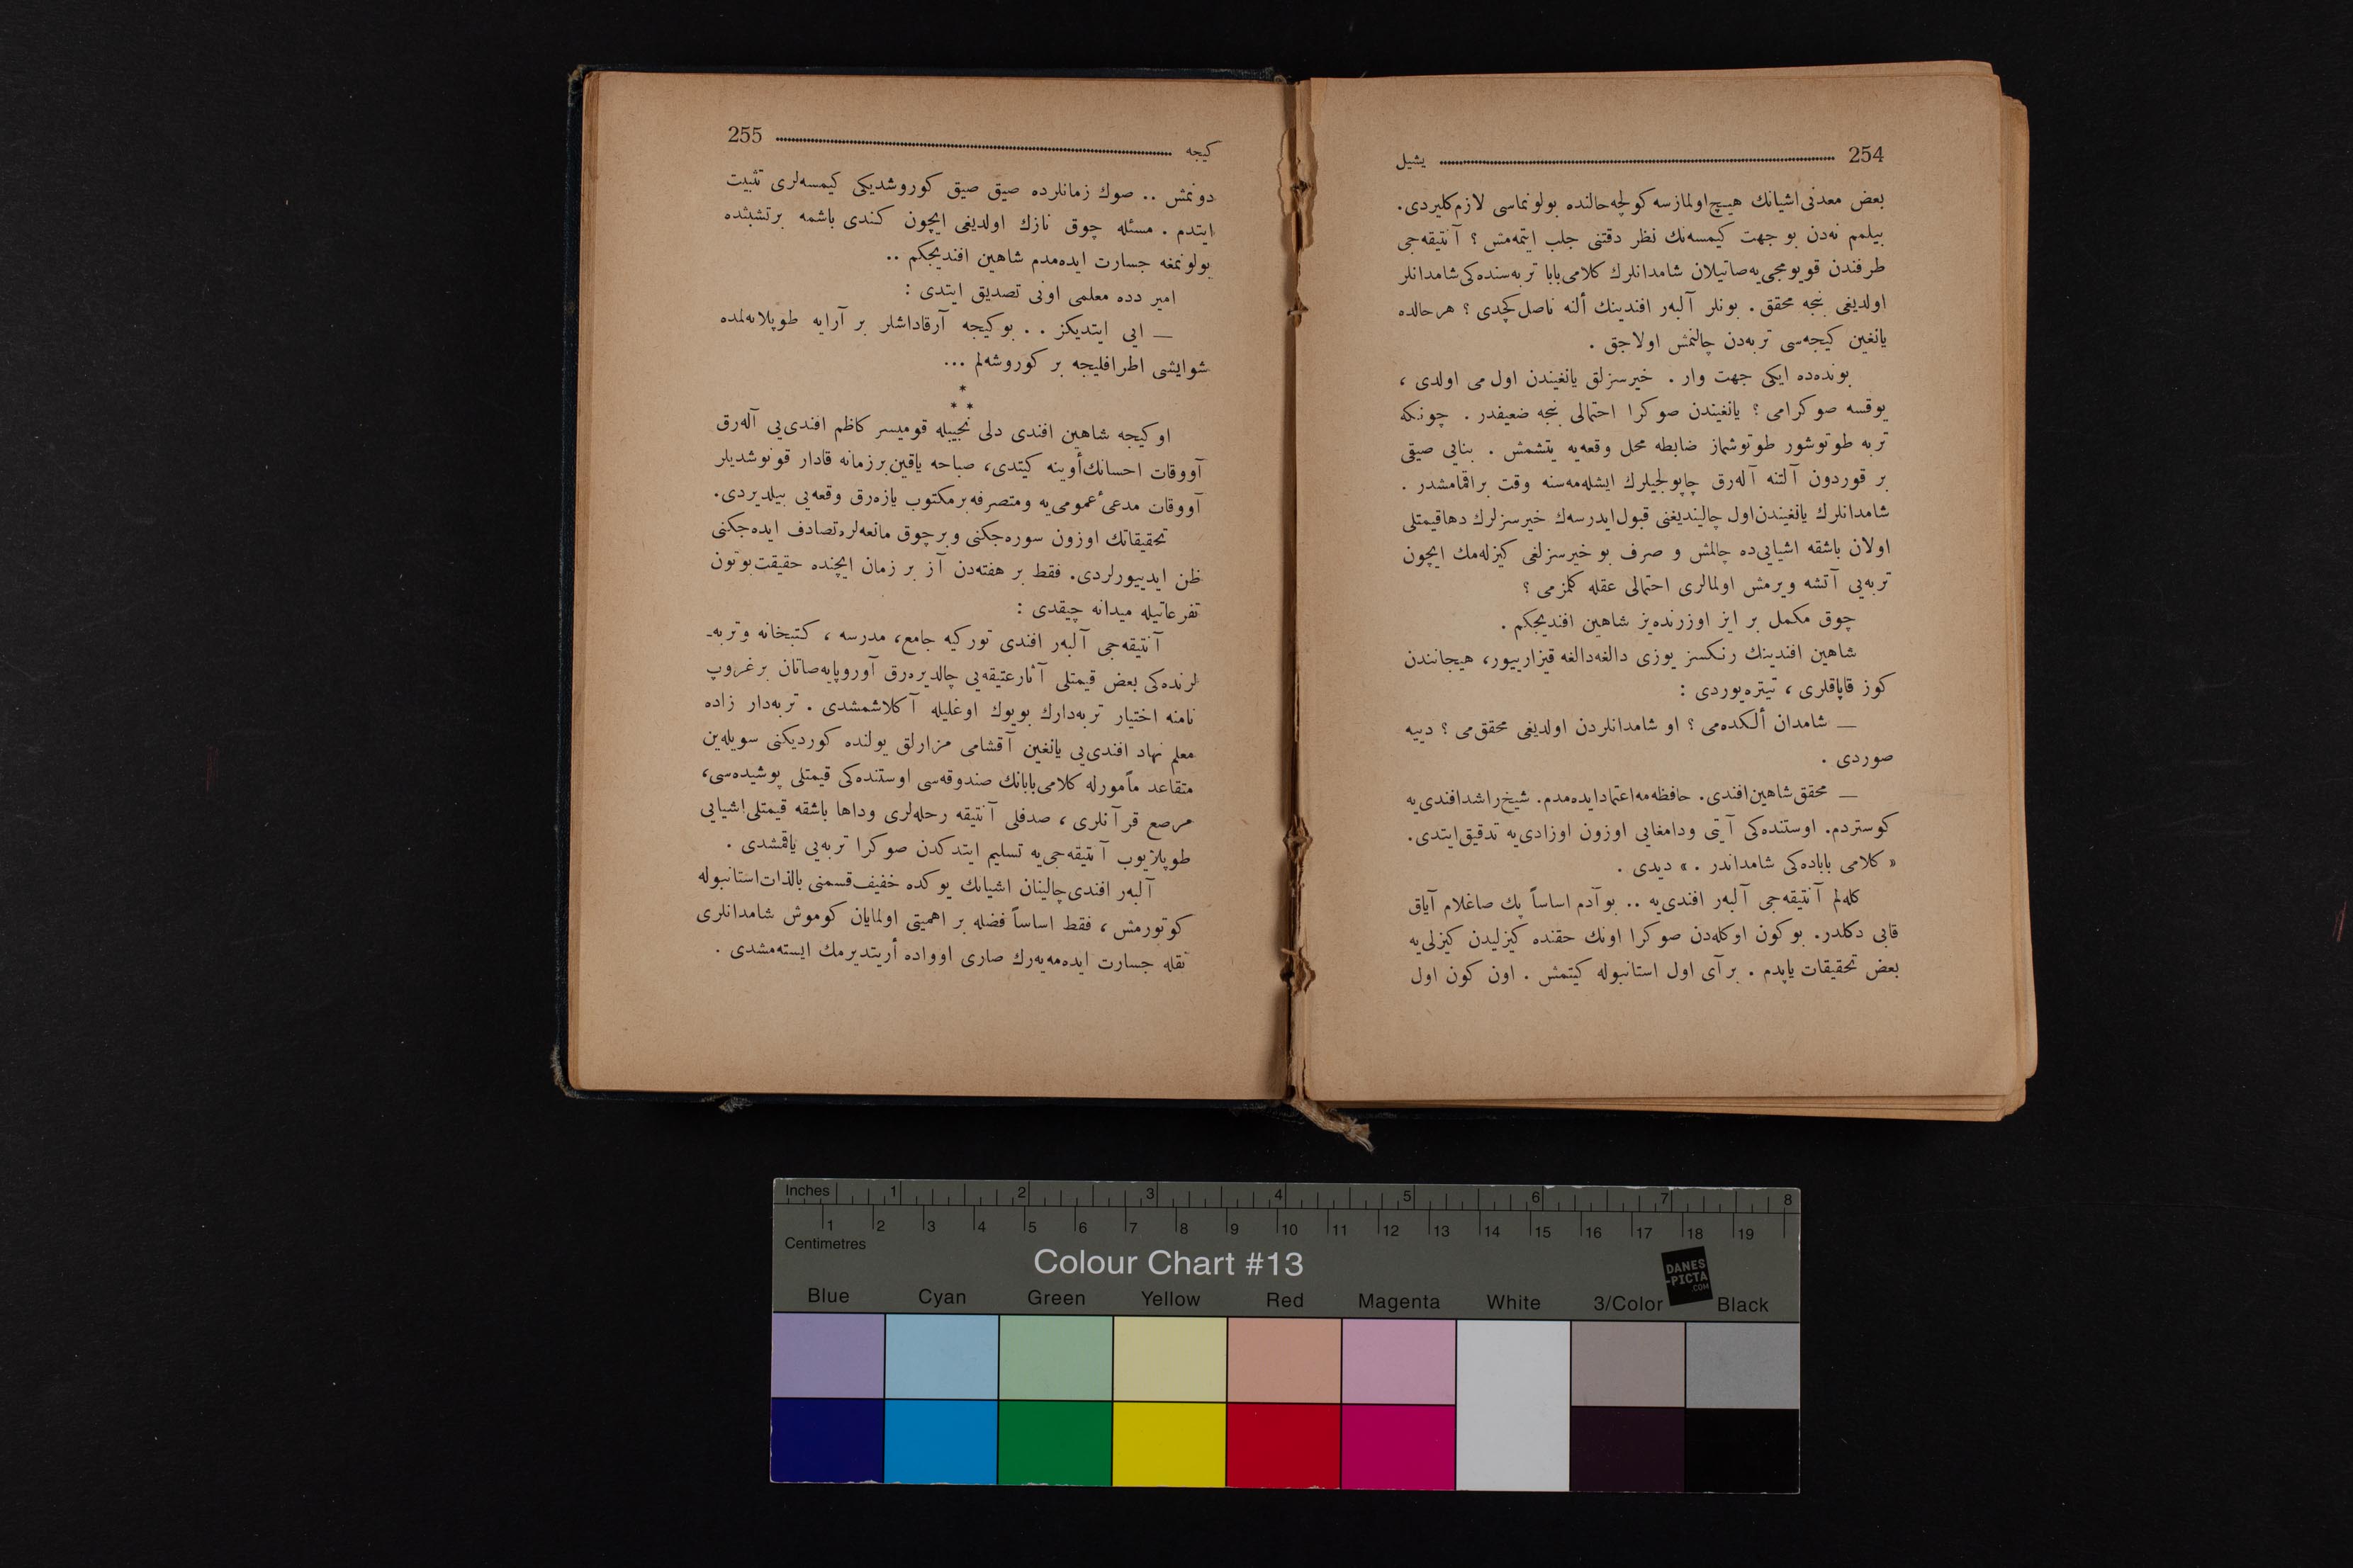 254 يشيل
بعض معدنی اشيانك هيچ اولمازسه كولچه حالنده بولونماسی لازم كليردی.
بيلمم نه‌دن بو جهت كيمسه‌نك نظر دقتنی جلب ايتمه‌مش ؟ آنتيقه‌جی
طرفندن قويومجی‌يه صاتيلان شامدانلرك كلامی بابا تربه‌سنده‌كی شامدانلر
اولديغی بنجه محقق . بونلر آلبه‌ر افندينك ألنه ناصل كچدی ؟ هر حالده
يانغين كيجه‌سی تربه‌دن چالنمش اولاجق .
بونده‌ده ايكی جهت وار . خيرسزلق يانغيندن اول می اولدی ،
يوقسه صوكرامی ؟ يانغيندن صوكرا احتمالی بنجه ضعيفدر . چونكه
تربه طوتوشور طوتوشماز ضابطه محل وقعه‌يه يتشمش . بنايی صيقی
بر قوردون آلتنه آله‌رق چاپولجيلرك ايشله‌مه‌سنه وقت براقمامشدر .
شامدانلرك يانغيندن اول چالينديغنی قبول ايدرسه‌ك خيرسزلرك دها قيمتلی
اولان باشقه اشيايی‌ده چالمش و صرف بو خيرسزلغی كيزله‌مك ايچون
تربه‌يی آتشه ويرمش اولمالری احتمالی عقله كلمزمی ؟
چوق مكمل بر ايز اوزرنده‌يز شاهين افنديجكم .
شاهين افندينك رنكسز يوزی دالغه دالغه قيزارييور، هيجانندن
كوز قاپاقلری ، تيتره‌يوردی :
— شامدان ألكده‌می ؟ او شامدانلردن اولديغی محقق می ؟ دييه
صوردی .
— محقق شاهين افندی. حافظه‌مه اعتماد ايده‌مدم. شيخ راشد افندی‌يه
كوستردم. اوستنده‌كی آيتی ودامغايی اوزون اوزادی‌يه تدقيق ايتدی.
« كلامی باباده‌كی شامداندر . » ديدی .
كله‌لم آنتيقه‌جی آلبه‌ر افندی‌يه .. بو آدم اساساً پك صاغلام آياق
قابی دكلدر. بو كون اوكله‌دن صوكرا اونك حقنده كيزليدن كيزلی‌يه
بعض تحقيقات ياپدم . بر آی اول استانبوله كيتمش . اون كون اول
كيجه 255
دونمش .. صوك زمانلرده صيق صيق كوروشديكی كيمسه‌لری تثبيت
ايتدم . مسئله چوق نازك اولديغی ايچون كندی باشمه بر تشبثده
بولونمغه جسارت ايده‌مدم شاهين افنديجكم ..
امير دده معلمی اونی تصديق ايتدی :
— ايی ايتديكز . . بو كيجه آرقاداشلر بر آرايه طوپلانه‌لمده
شو ايشی اطرافليجه بر كوروشه‌لم ...
* * *
او كيجه شاهين افندی دلی نجيبله قوميسر كاظم افندی‌يی آله‌رق
آووقات احسانك أوينه كيتدی، صباحه ياقين بر زمانه قادار قونوشديلر
آووقات مدعیٔ عمومی‌يه ومتصرفه بر مكتوب يازه‌رق وقعه‌يی بيلديردی.
تحقيقاتك اوزون سوره‌جكنی وبر چوق مانعه‌لره تصادف ايده‌جكنی
ظن ايدييورلردی. فقط بر هفته‌دن آز بر زمان ايچنده حقيقت بوتون
تفرعاتيله ميدانه چيقدی :
آنتيقه‌جی آلبه‌ر افندی توركيه جامع، مدرسه ، كتبخانه وتربه‌ـ
لرنده‌كی بعض قيمتلی آثار عتيقه‌يی چالديره‌رق آوروپايه صاتان بر غروپ
نامنه اختيار تربه‌دارك بويوك اوغليله آكلاشمشدی . تربه‌دار زاده
معلم نهاد افندی‌يی يانغين آقشامی مزارلق يولنده كورديكنی سويله‌ين
متقاعد مأمورله كلامی بابانك صندوقه‌سی اوستنده‌كی قيمتلی پوشيده‌سی،
مرصع قرآنلری ، صدفلی آنتيقه رحله‌لری وداها باشقه قيمتلی اشيايی
طوپلايوب آنتيقه‌جی‌يه تسليم ايتدكدن صوكرا تربه‌يی ياقمشدی .
آلبه‌ر افندی چالينان اشيانك يوكده خفيف قسمنی بالذات استانبوله
كوتورمش ، فقط اساساً فضله بر اهميتی اولمايان كوموش شامدانلری
نقله جسارت ايده‌مه‌يه‌رك صاری اوواده أريتديرمك ايسته‌مشدی .
Inches 1 2 3 4 5 6 7 8
1 2 3 4 5 6 7 8 9 10 11 12 13 14 15 16 17 18 19
Centimetres
Colour Chart #13
DANES
-PICTA
.COM
Blue Cyan Green Yellow Red Magenta White 3/Color Black